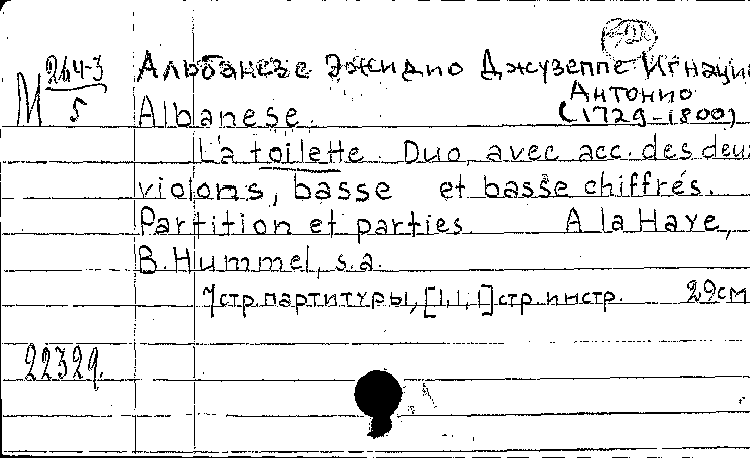 М 264-3/5
Альбанезе Эжидио Джузеппе Игнацио
Антонио
Albanese. (1729-1800)
La toilette. Duo, avec acc. des deux
violons, basse et basse chiffrés.
Partition et parties. A la Haye,
B. Hummel, s.a.
7стр.партитуры, [1,1,1]стр.инстр. 29см
22329.